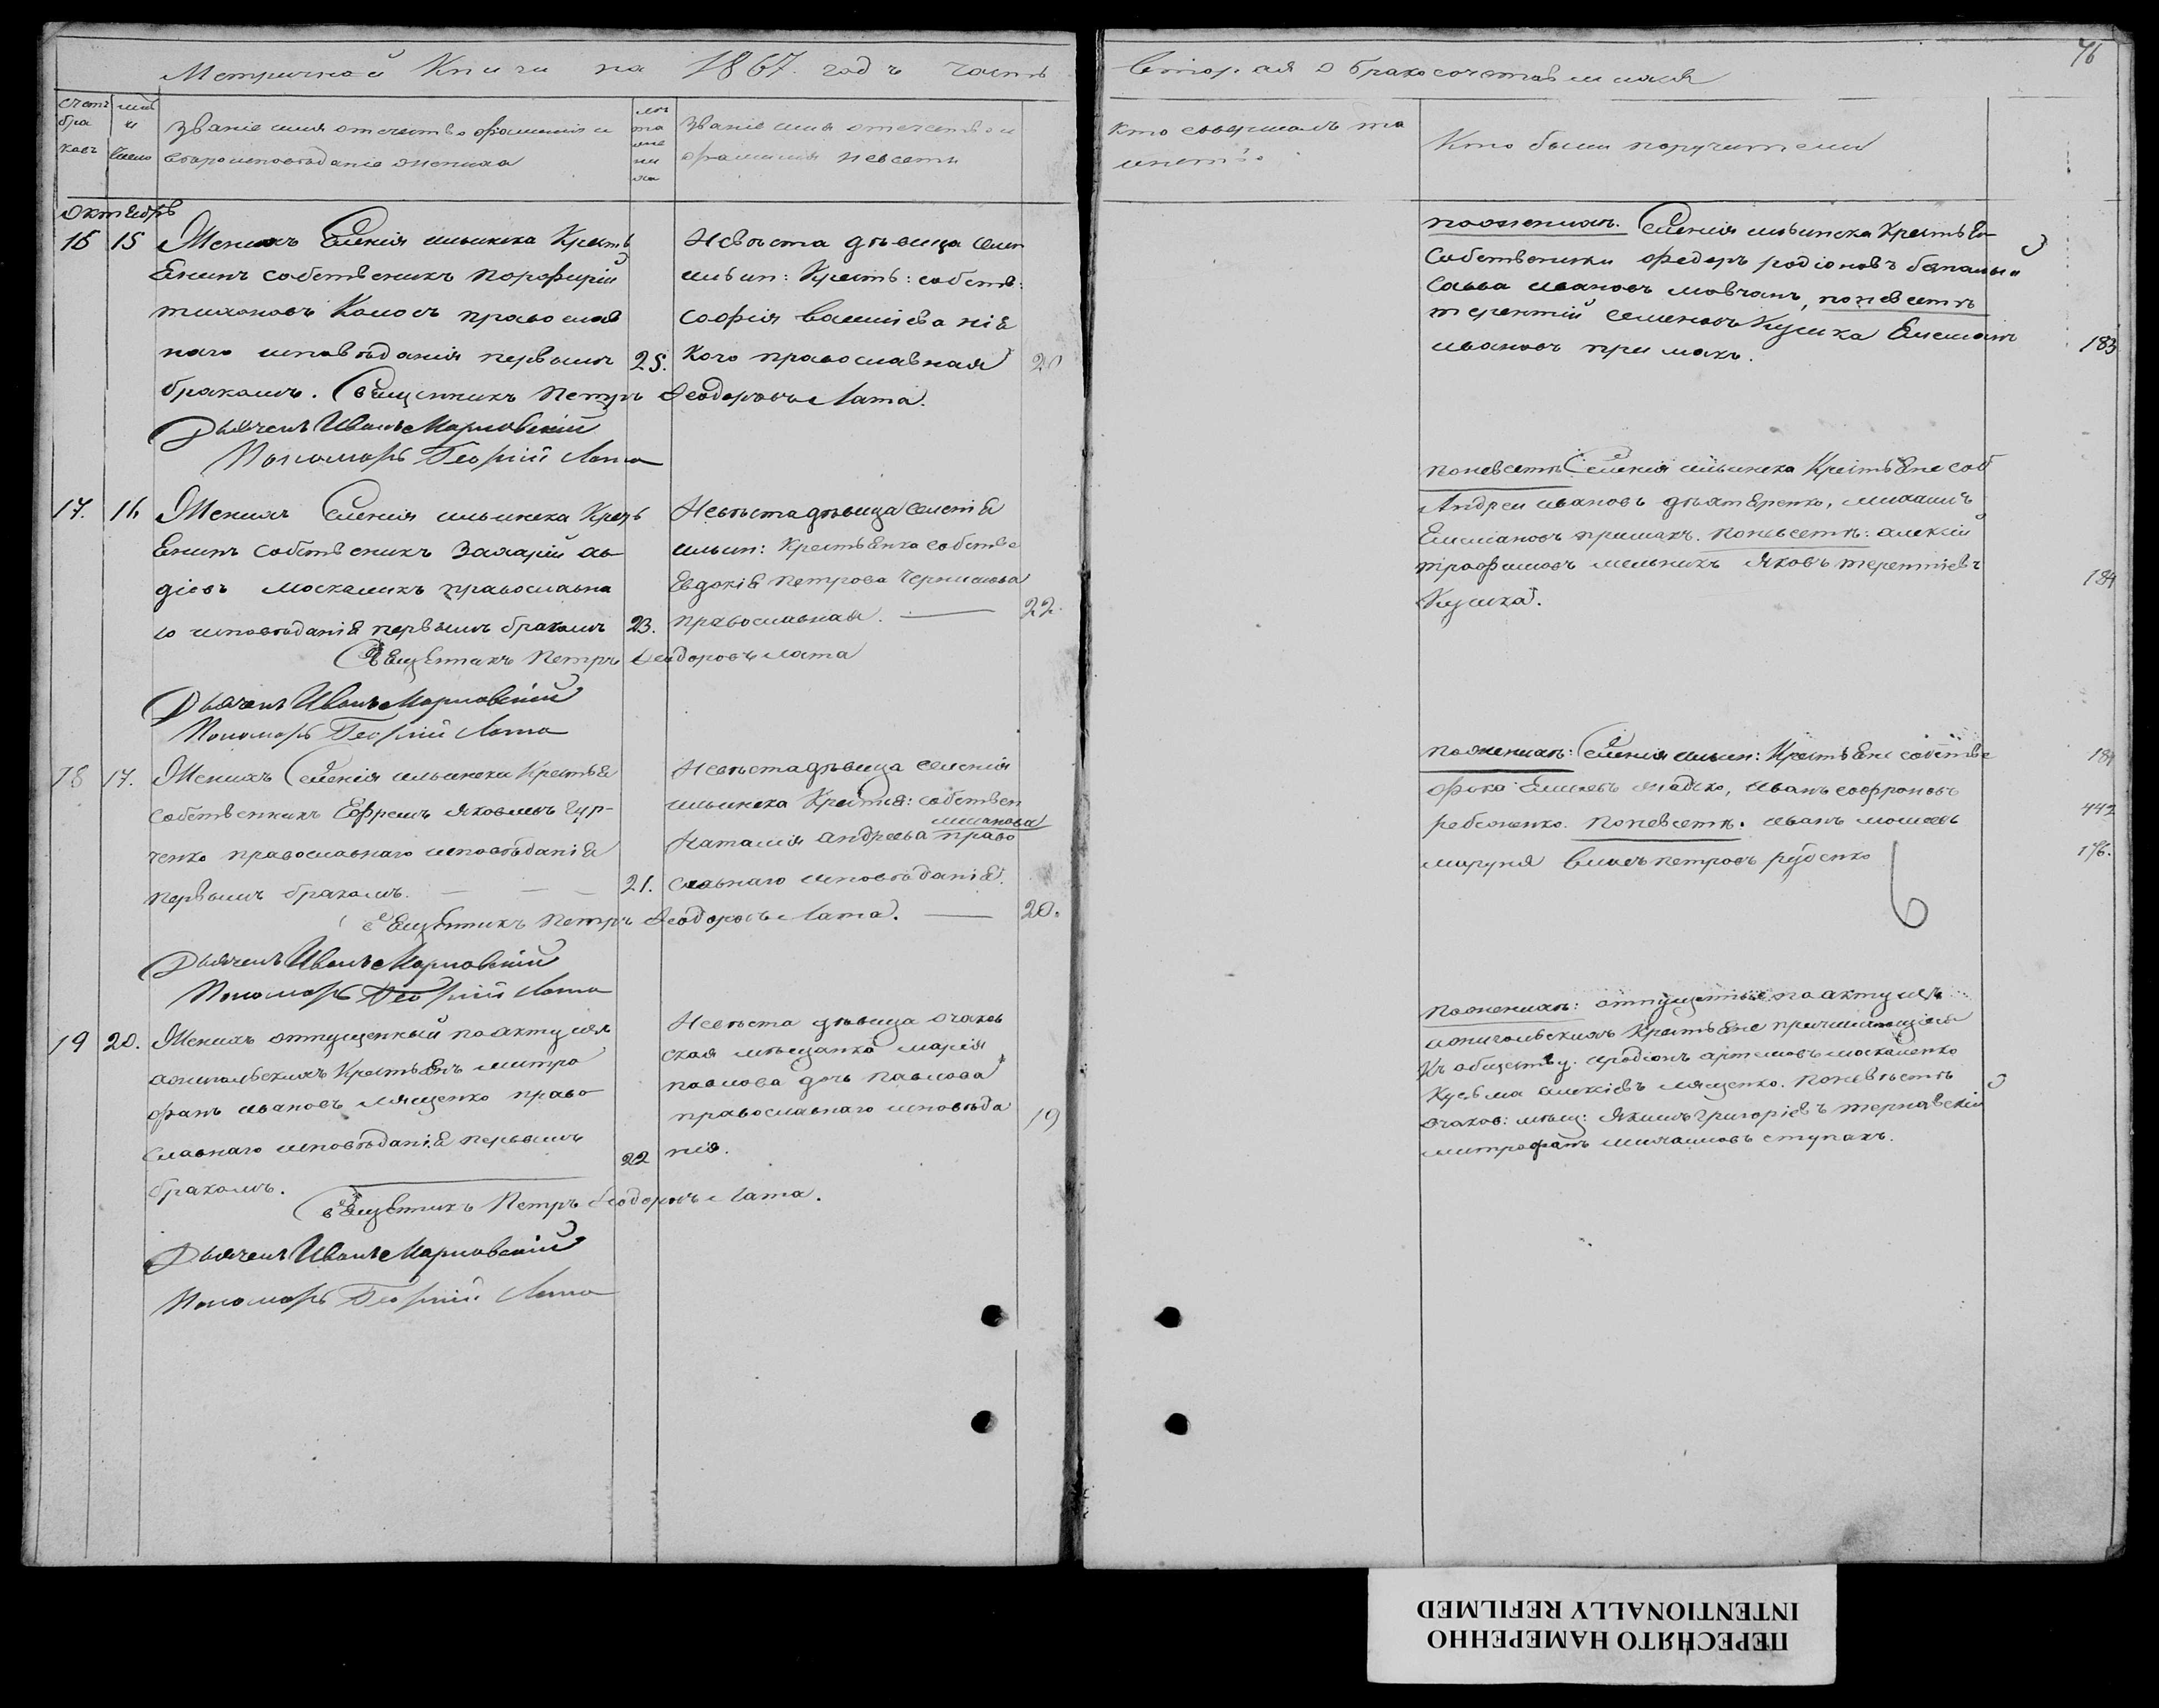 Метричной Книги на 1867. годъ часть
вторая о бракосочетавшихся
76
счетъ браковъ
Званіе имя отечество фамилія и вѣроисповѣданіе жениха
лѣта жениха
Званіе имя отечество и фамилія невесты
кто совершалъ таинство
Кто были поручители
Октябрь
16 15 Женихъ Селенія ильинска Кресть
янинъ собственикъ Порфирій
тихоновъ Колосъ православ
наго исповѣданія первымъ 25.
бракомъ. Священникъ Петръ Феодоровъ Лата.
Дьячекъ Иванъ Марковскій
Пономарь Георгій Лата
Невѣста дѣвица селен
ильин: Кресть: собств:
Софія василіева ніе
кого православная 20
по женихѣ. Селенія ильинска Крестьян
Собственики Федоръ родіоновъ
Савва ивановъ мовчанъ, по невестѣ
терентій семеновъ Кузика Емельян
ивановъ примакъ.
183
17. 16 Женихъ Селенія ильинска Кресть
янинъ собственикъ Захарій ав
діовъ москаликъ православна
го исповѣданія первымъ бракомъ 23.
Священникъ Петръ Феодоровъ Лата
Дьячекъ Иванъ Марковскій
Пономарь Георгій Лата
Невѣста дѣвица селенія
ильин: Крестьянка собстве
Евдокія Петрова Чернишова
православная. 22.
по невестѣ Селенія ильинска Крестьяне соб
Андрей ивановъ дѣхтеренко, михаилъ
Емелиановъ примакъ. по невестѣ: алексій
трофимовъ мельникъ Яковъ терентіевъ
Кузика.
184
18 17. Женихъ Селенія ильински Крестья
собственникъ Ефремъ Яковлевъ Гур-
ченко православнаго исповѣданія
первымъ бракомъ. 21.
Священникъ Петръ Феодоровъ Лата. 20.
Дьячекъ Иванъ Марковскій
Пономарь Георгій Лата
Невѣста дѣвица селенія
ильинска Крестья: собствен
Наталія андреева право
славнаго исповѣданія.
по женихѣ: Селенія ильин: Крестьяне собстве
фока, иванъ софроновъ
ребоненко. по невестѣ. иванъ
Власъ петровъ руденко
184
442
176.
19 20. Женихъ отпущенный по акту изъ
Крестьянъ митро
фанъ ивановъ лященко право
славнаго исповѣданія первымъ 22
бракомъ.
Священникъ Петръ Феодоровъ Лата.
Дьячекъ Иванъ Марковскій
Пономарь Георгій Лата
Невѣста дѣвица очаков
ская мѣщанка марія
павлова дочь павлова
православнаго исповѣда 19
нія.
по женихѣ: отпущеные по акту изъ
Крестьяне причисляющіеся
къ обществу: иродіонъ артемовъ москаленко
Кузьма алексіевъ лященко. по невѣстѣ
очаков: мѣщ: Якимъ григоріевъ терновскій
митрофанъ михаиловъ ступакъ.
ПЕРЕСНЯТО НАМЕРЕННО
INTENTIONALLY REFILMED